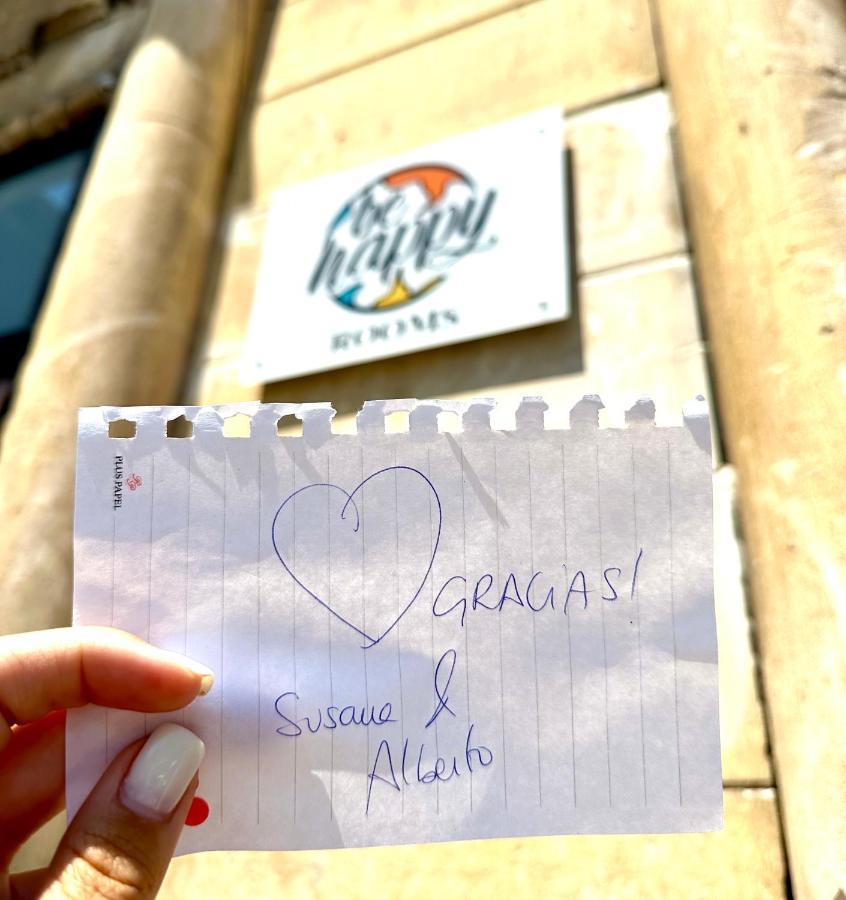 be
happy
ROOMS
PLUS PAPEL
GRACIAS!
Susana &
Alberto